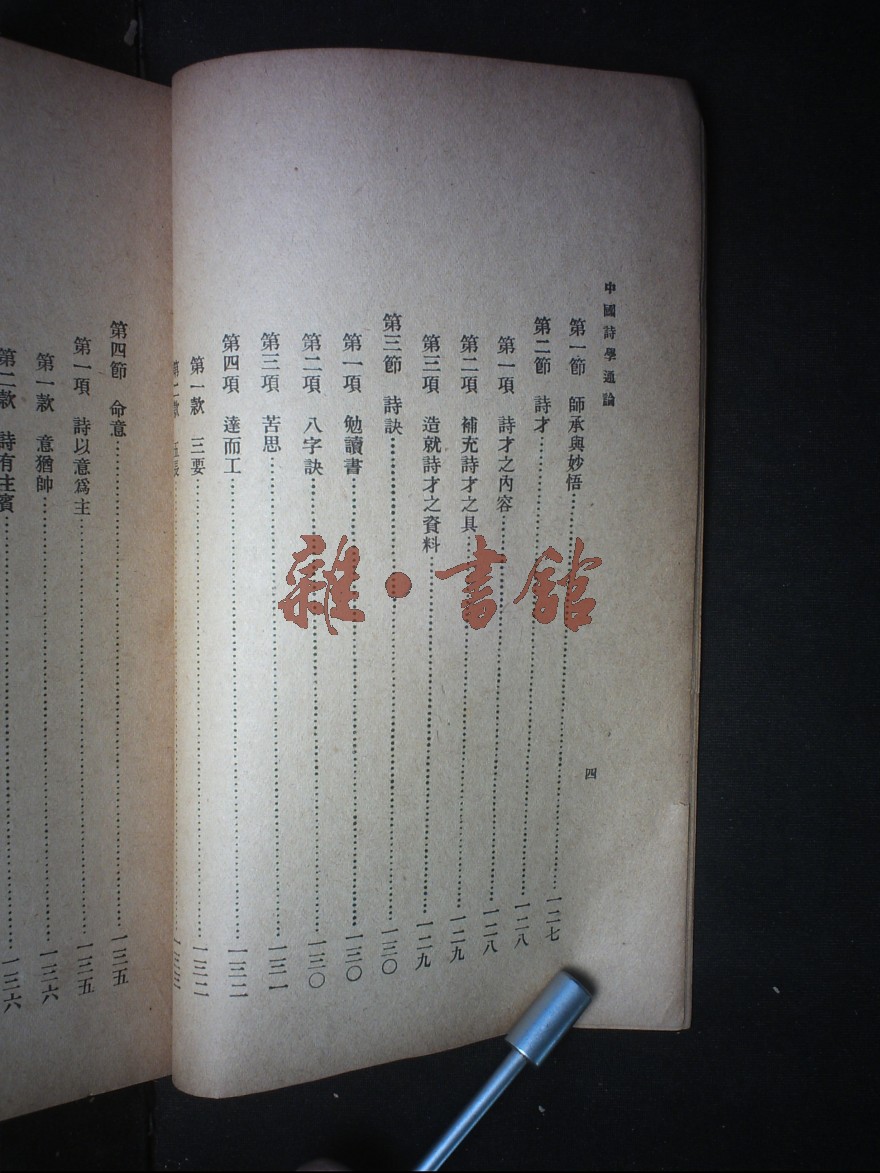 中國詩學通論
四
第一節 師承與妙悟……一二七
第二節 詩才……一二八
第一項 詩才之內容……一二八
第二項 補充詩才之具……一二九
第三項 造就詩才之資料……一二九
第三節 詩訣……一三〇
第一項 勉讀書……一三〇
第二項 八字訣……一三〇
第三項 苦思……一三一
第四項 達而工……一三二
第一款 三要……一三二
第二款
第四節 命意……一三五
第一項 詩以意爲主……一三五
第一款 意猶帥……一三六
第二款 詩有主賓……一三六
雜·書館